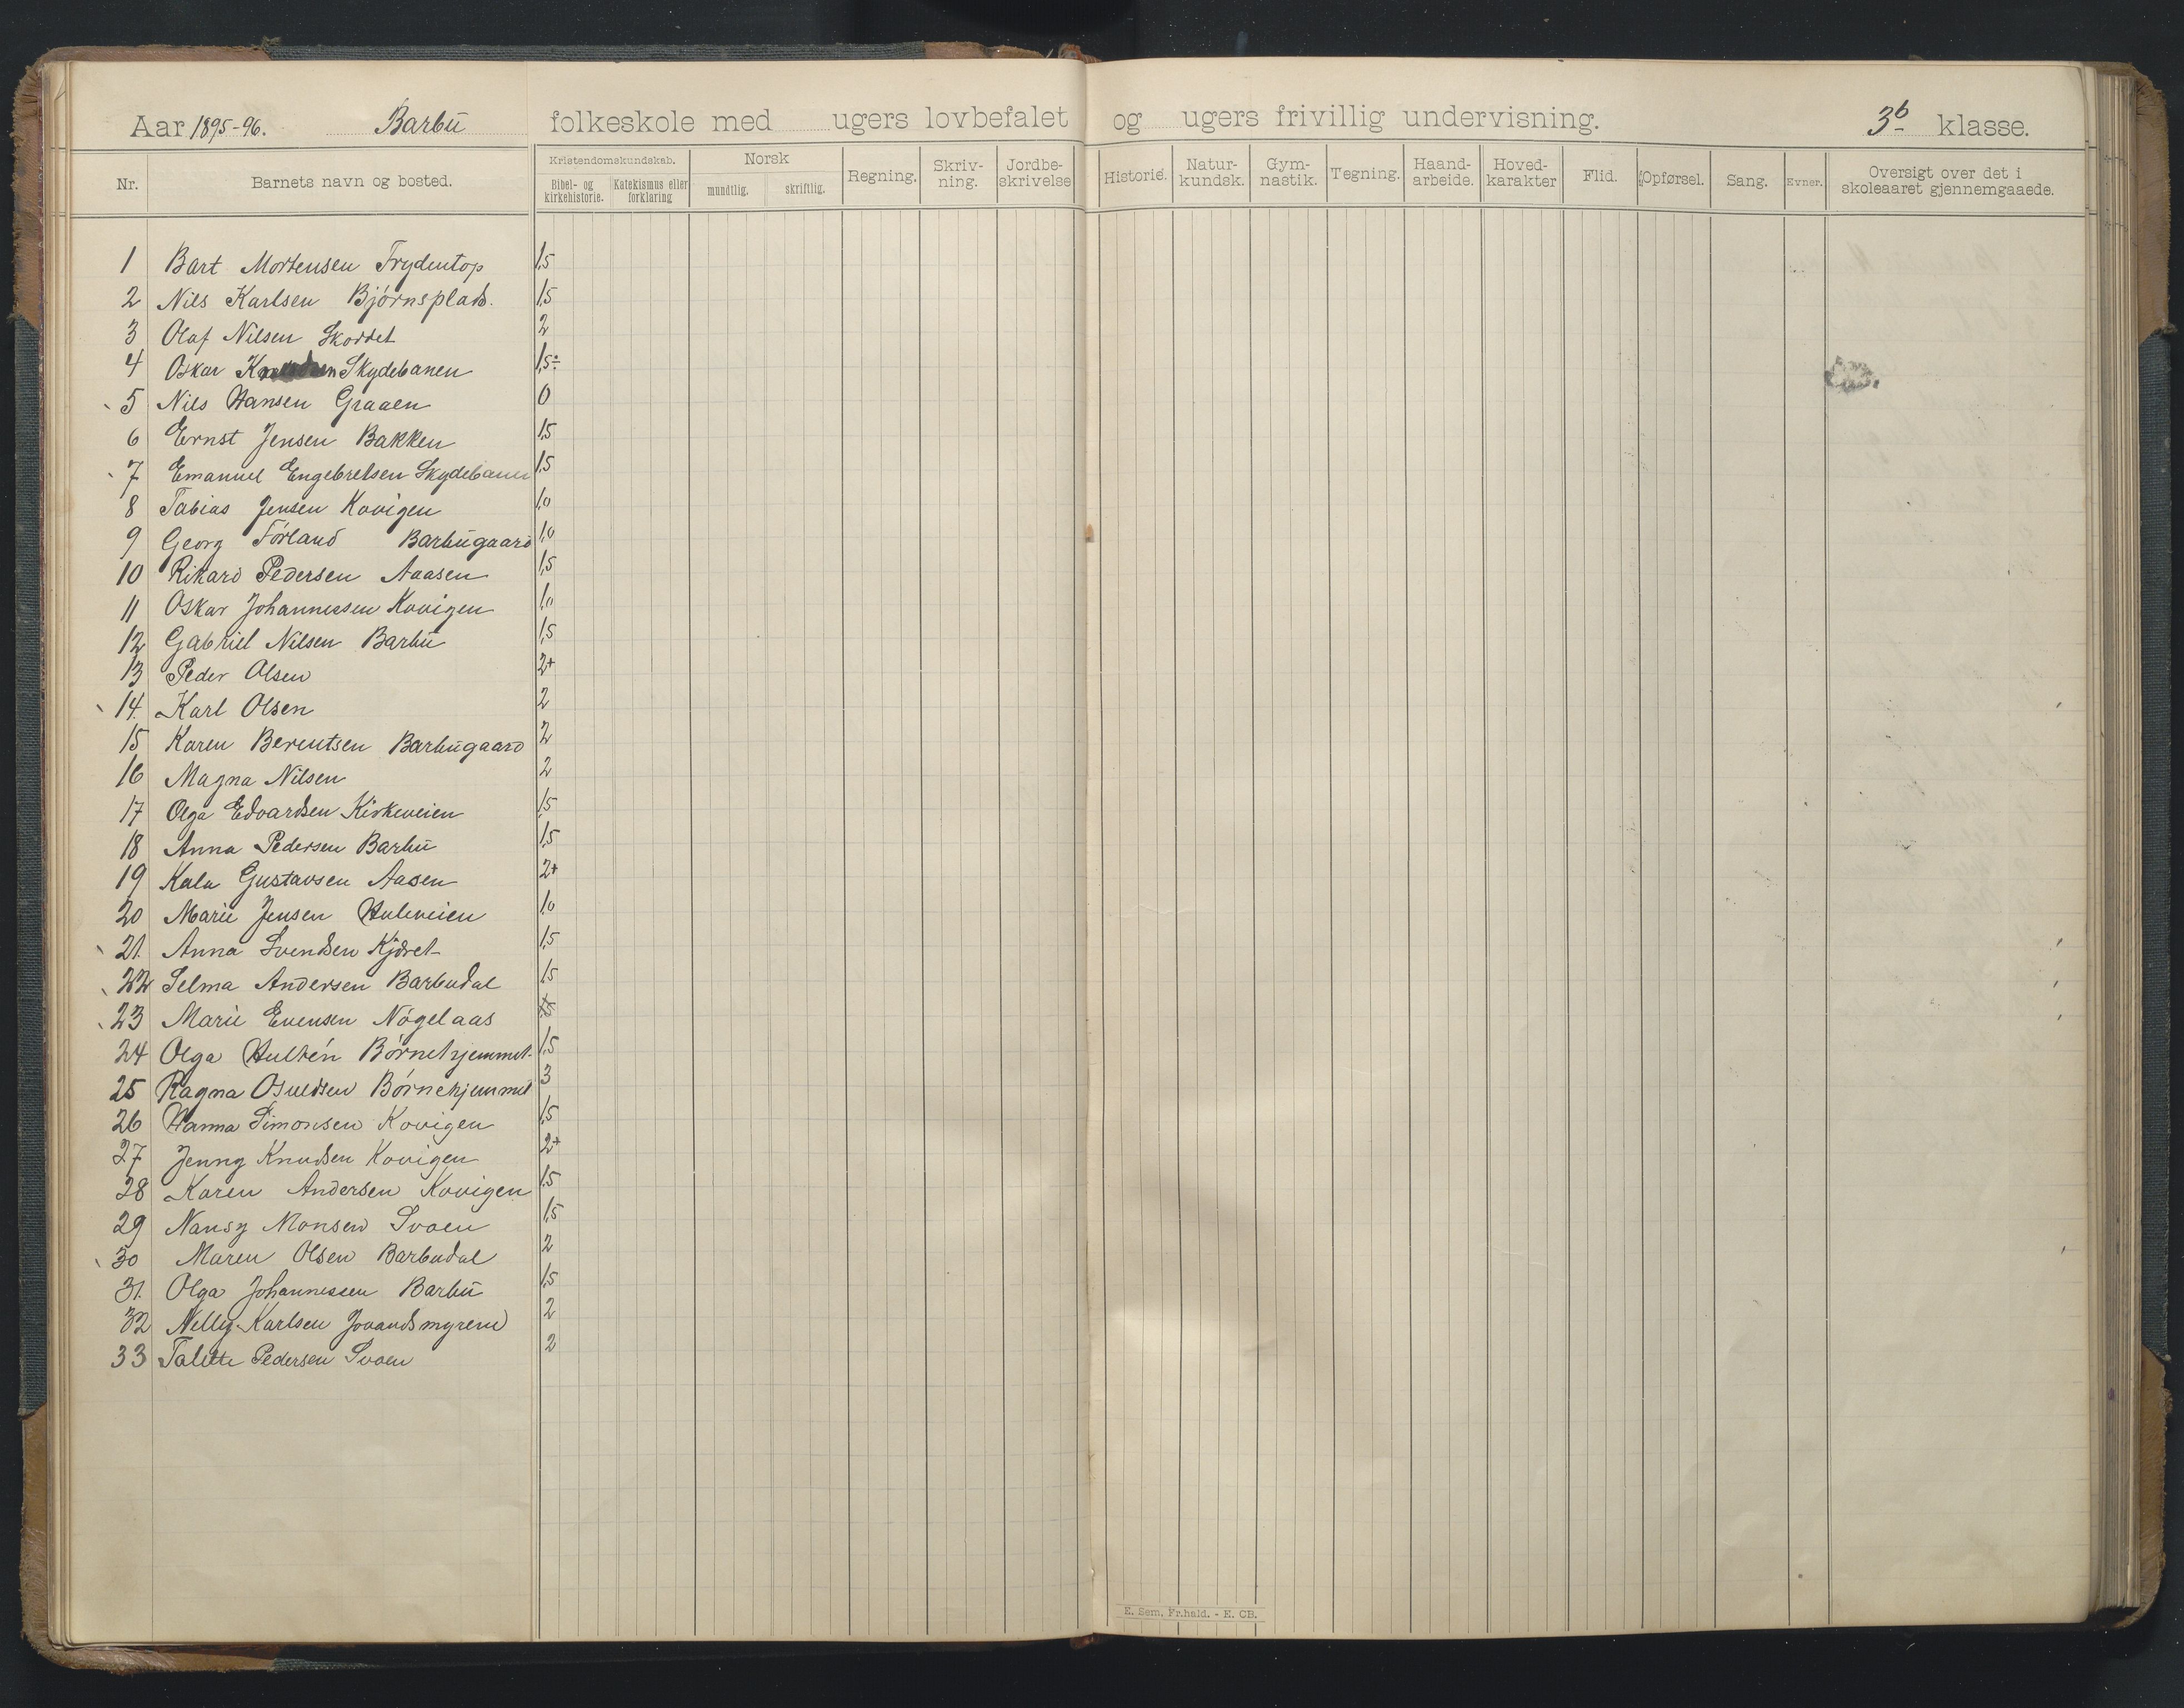 Aar 1895-96. Barbu folkeskole med ugers lovbefalet og ugers frivillig undervisning. 3b klasse.
Nr. Barnets navn og bosted. Kristendomskundskab. Bibel- og kirkehistorie. Katekismus eller forklaring Norsk mundtlig. skriftlig. Regning. Skriv-ning. Jordbe-skrivelse Historie. Natur-kundsk. Gym-nastik. Tegning. Haand-arbeide. Hoved-karakter Flid. Opførsel. Sang. Evner. Oversigt over det i skoleaaret gjennemgaaede.
1 Bart Mortensen Frydentop 1,5
2 Nils Karlsen Bjørnsplads. 1,5
3 Olaf Nilsen 2
4 Oskar Skydebanen 1,5
5 Nils Hansen Graaen 0
6 Ernst Jensen Bakken 1,5
7 Emanuel Engebretsen Skydebanen 1,5
8 Tobias Jensen Kovigen 1,0
9 Georg Førland Barbugaard 1,0
10 Rikard Pedersen Aaasen 1,5
11 Oskar Johannessen Kovigen 1,0
12 Gabriel Nilsen Barbu 1,5
13 Peder Olsen 2+
14. Karl Olsen 2
15 Karen Berentsen Barbugaard 2
16 Magna Nilsen 2
17 Olga Edvardsen Kirkeveien 1,5
18 Anna Pedersen Barbu 1,5
19 Kala Gustavsen Aasen 2+
20 Marie Jensen Huleveien 1,0
21. Anna Svendsen 1,5
22 Selma Andersen Barbudal 1,5
23 Marie Evensen Nøgelaas
24 Olga Hultén Børnehjemmet 1,5
25 Ragna Osuldsen Børnehjemmet 3
26 Hanna Simonsen Kovigen 1,5
27 Jenny Knudsen Kovigen 2+
28 Karen Andersen Kovigen 1,5
29 Nansy Monsen Svoen 1,5
30 Maren Olsen Barbudal 2
31. Olga Johannessen Barbu 1,5
32 Nelly Karlsen 2
33 Talette Pedersen Svoen 2
E. Sem, Fr.hald. - E. CB.